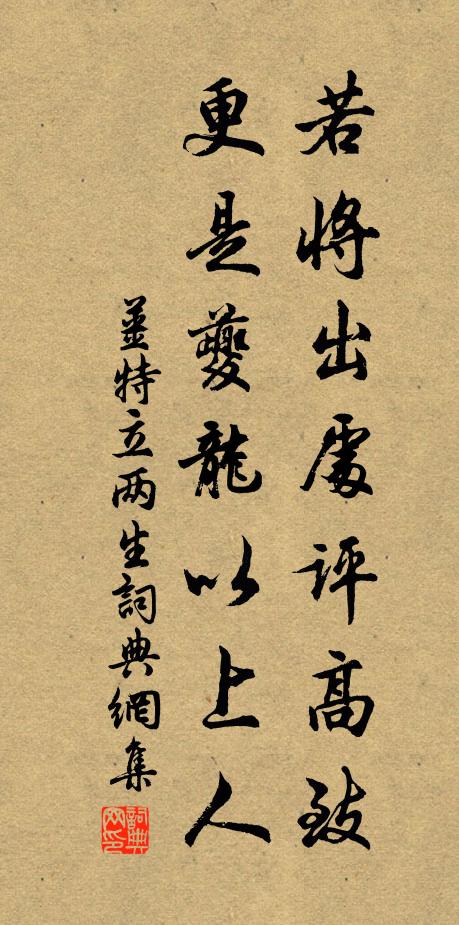 若將出處評高致
更是夔龍以上人
姜特立两生詞典網集
詞典网印